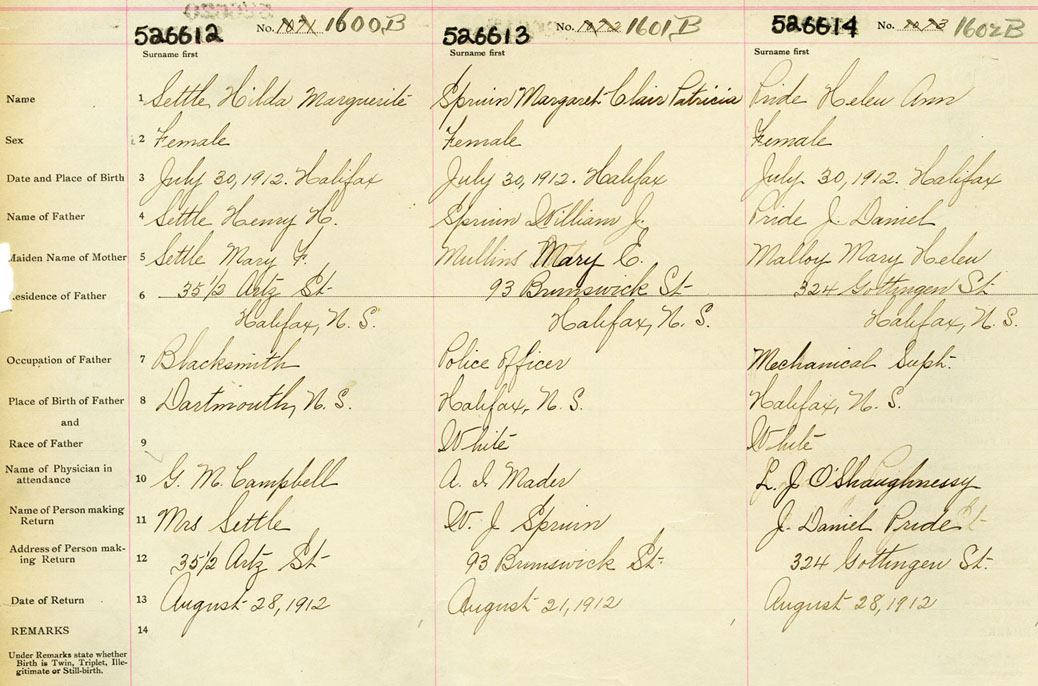 526612 No. 1071 1600B 526613 No. 1072 1601B 526614 No. 1073 1602B
Surname first Surname first Surname first
Name 1 Settle, Hilda Marguerite Spruin Margaret Clair Patricia Pride Helen Ann
Sex 2 Female Female Female
Date and Place of Birth 3 July 30, 1912. Halifax July 30, 1912. Halifax July 30, 1912. Halifax
Name of Father 4 Settle Henry H. Spruin William J. Pride J. Daniel
Maiden Name of Mother 5 Settle Mary F. Mullins Mary E. Malloy Mary Helen
Residence of Father 6 35 1/2 Artz St 93 Brunswick St 324 Gottingen St
Halifax, N. S. Halifax, N. S. Halifax, N. S.
Occupation of Father 7 Blacksmith Police Officer Mechanical Supt.
Place of Birth of Father 8 Dartmouth, N. S. Halifax, N. S. Halifax, N. S.
and
Race of Father 9 White White
Name of Physician in
attendance 10 G. M. Campbell A. I. Mader L. J. O'Shaughnessy
Name of Person making
Return 11 Mrs Settle W. J. Spruin J. Daniel Pride
Address of Person mak-
ing Return 12 35 1/2 Artz St 93 Brunswick St. 324 Gottingen St.
Date of Return 13 August 28, 1912 August 21, 1912 August 28, 1912
REMARKS 14
Under Remarks state whether
Birth is Twin, Triplet, Ille-
gitimate or Still-birth.